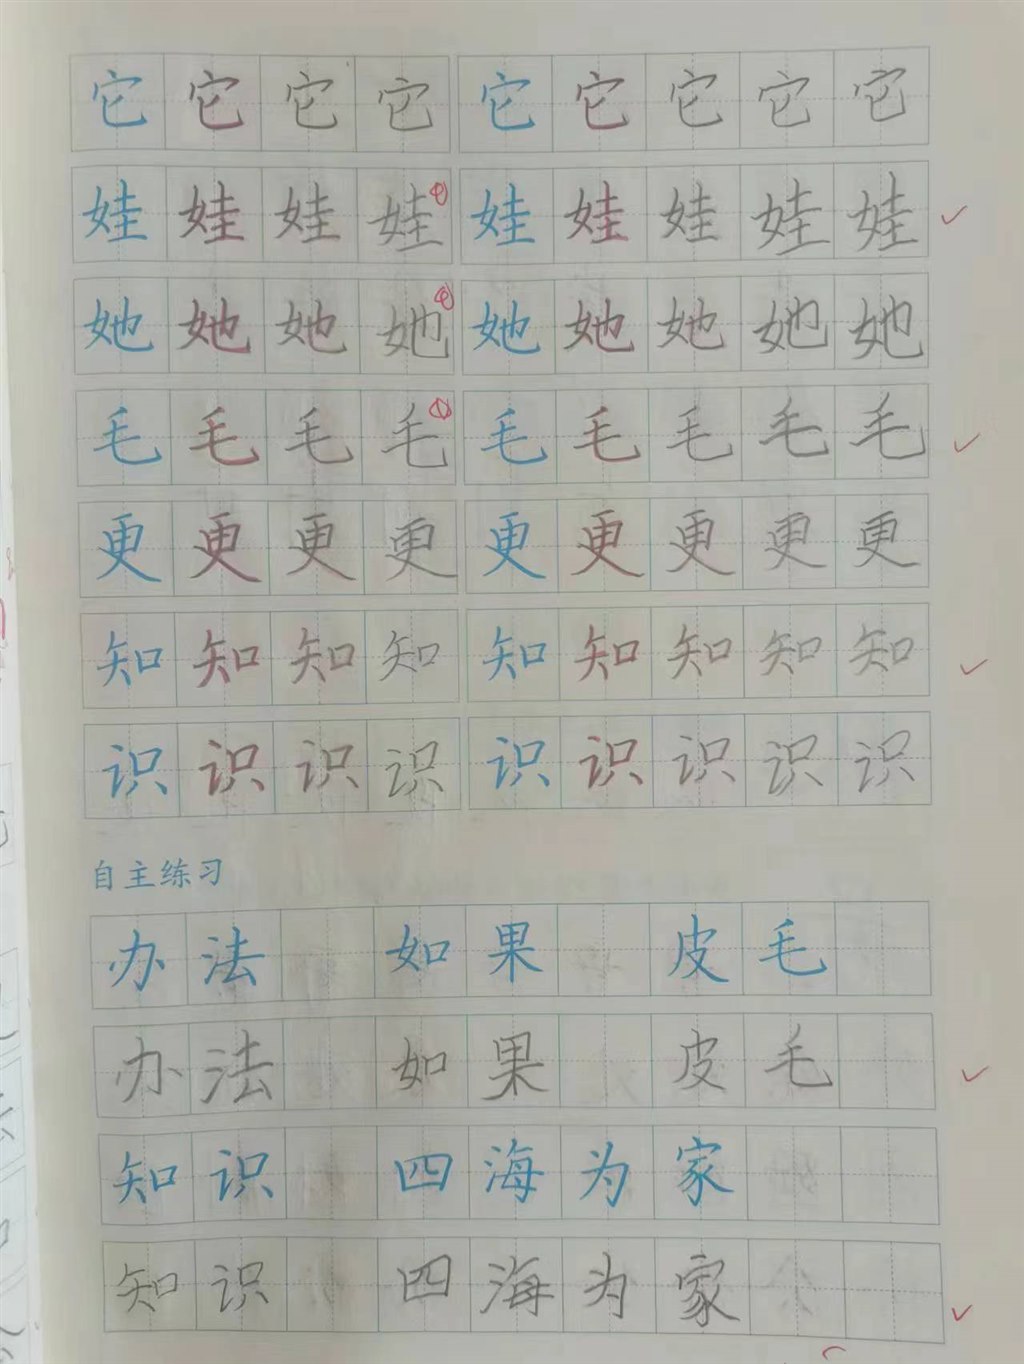 它它它它它它它它它
娃娃娃娃娃娃娃娃娃
她她她她她她她她她
毛毛毛毛毛毛毛毛毛
更更更更更更更更更
知知知知知知知知知
识识识识识识识识识
自主练习
办法 如果 皮毛
办法 如果 皮毛
知识 四海为家
知识 四海为家